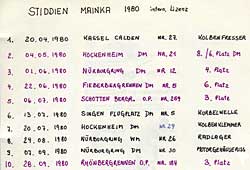 STIDDIEN MAINKA intern. Lizenz
1. 20.04.1980 KASSEL CALDEN NR. 27 KOLBENFRESSER
2. 04.05.1980 HOCKENHEIM DM NR. 21 8./6. Platz DM
3. 01.06.1980 NÜRBURGRING DM NR. 12 4. Platz
4. 22.06.1980 FIEBERBERGRENNEN DM NR. 5 6. Platz
5. 06.07.1980 SCHOTTEN BERGR. O.P. NR. 269 3. Platz
6. 13.07.1980 SINGEN FLUGPLATZ DM NR. 5 KURBELWELLE
7. 20.07.1980 HOCKENHEIM DM NR. 29 KOLBENKLEMMER
8. 24.08.1980 NÜRBURGRING WM NR. 26 RADLAGER
9. 07.09.1980 NÜRBURGRING DM NR. 30
10. 28.09.1980 RHÖNBERGRENNEN O.P. NR. 184 3. Platz